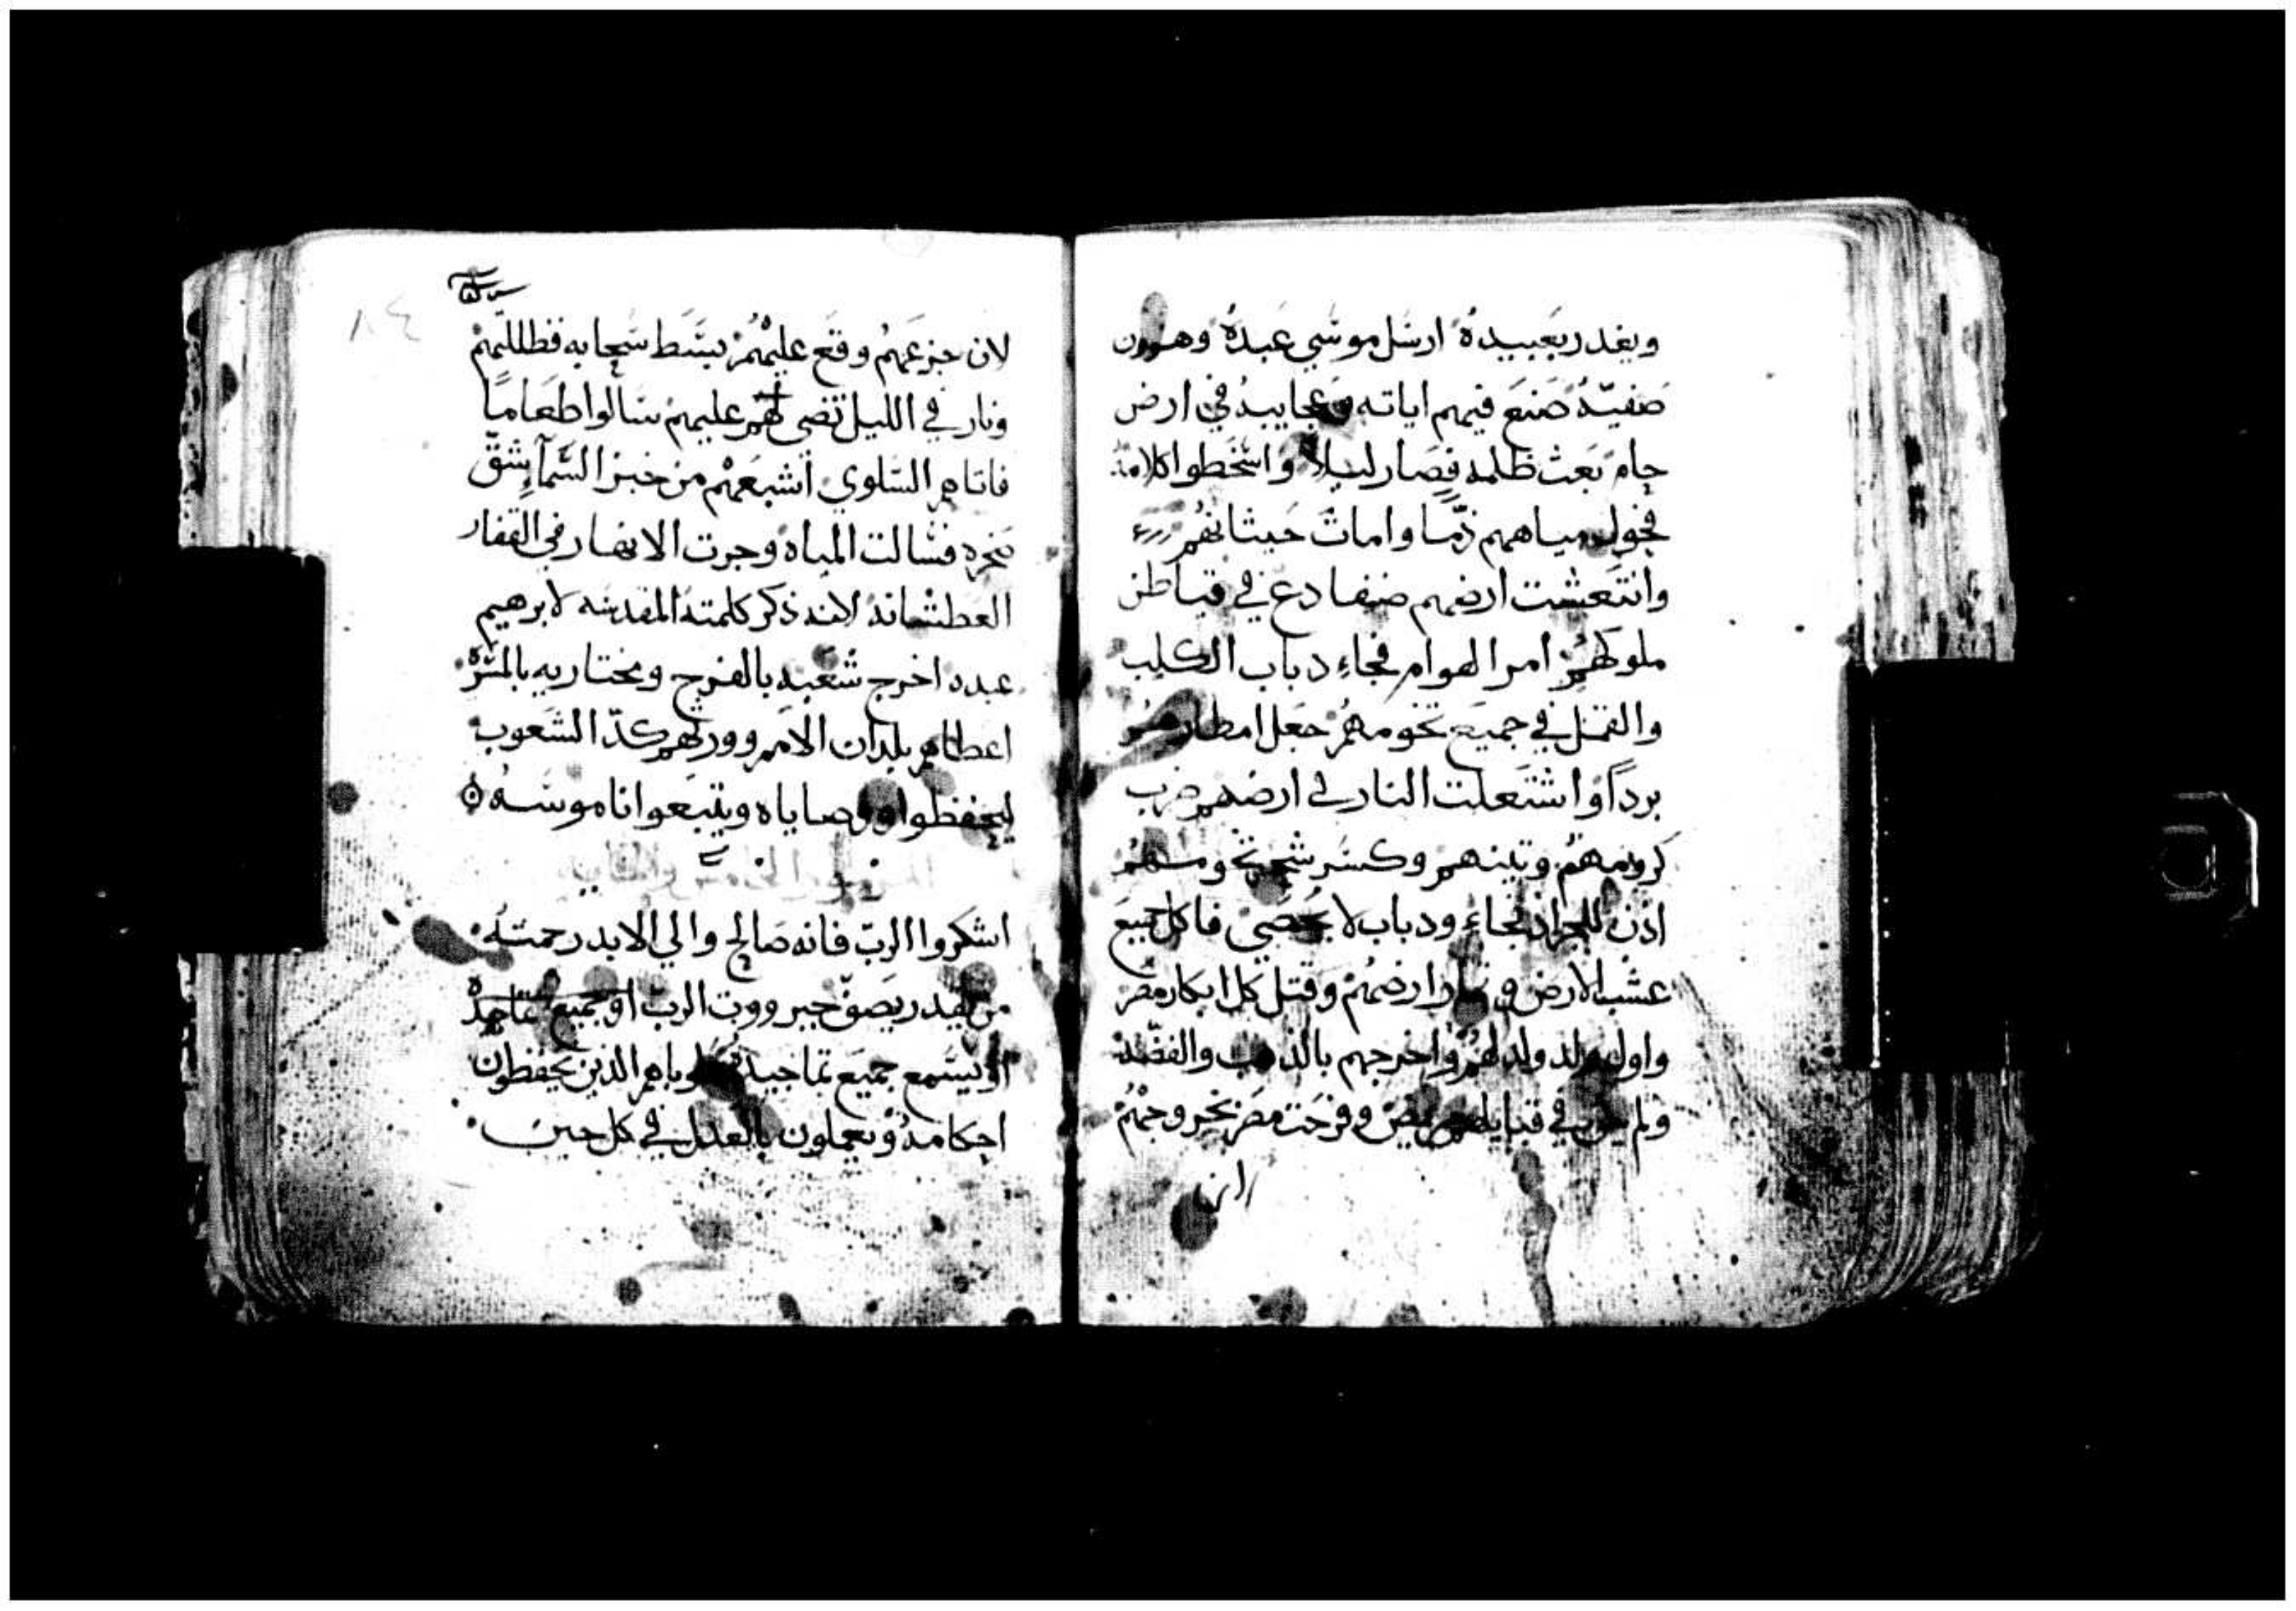 ويغدر بعبيده ارسل موسي عبده وهرون
صفيه صنع فيهم اياته وعجايبه في ارض
حام بعث ظلمه فصار ليلا واسخطوا كلامه
فحول مياههم دما وامات حيتانهم
وانتعشت ارضهم ضفادع في قياطن
ملوكهم امر الهوام فجاء دباب الكلب
والقمل في جميع تخومهم جعل امطارهم
بردا واشتعلت النار في ارضهم ضرب
كرومهم وتينهم وكسر شجر تخومهم
اذن للجراد فجاء ودباب لا يحصي فاكل جميع
عشب الارض و ثمار ارضهم وقتل كل ابكار مصر
واول ولد ولد لهم واخرجهم بالذهب والفضه
ولم يكن في قبايلهم مريض وفرحت مصر بخروجهم
لان
لان جزعهم وقع عليهم بسط سحابه فظللتهم
ونار في الليل تضي لهم عليهم سالوا طعاما
فاتاهم السلوي اشبعهم من خبز السمآء شق
صخره فسالت المياه وجرت الانهار في القفار
العطشانه لانه ذكر كلمته المقدسه لابرهيم
عبده اخرج شعبه بالفرح ومختاريه بالمسره
اعطاهم بلدان الامم وورثهم كد الشعوب
ليحفظوا وصاياه ويتبعوا ناموسه
اشكروا الرب فانه صالح والي الابد رحمته
من يقدر يصف جبرووت الرب او جميع تماجيده
او يسمع جميع تماجيده طوباهم الذين يحفظون
احكامه ويعملون بالعدل في كل حين